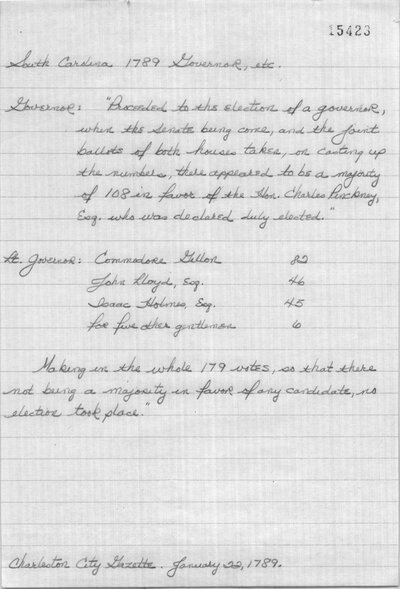 15423
South Carolina 1789 Governor, etc.
Governor: "Proceeded to the election of a governor,
when the Senate being come, and the joint
ballots of both houses taken, on casting up
the numbers, there appeared to be a majority
of 108 in favor of the Hon. Charles Pinckney,
Esq. who was declared duly elected."
Lt. Governor: Commodore Gillon 82
John Lloyd, Esq. 46
Isaac Holmes, Esq. 45
for five other gentlemen 6
Making in the whole 179 votes, so that there
not being a majority in favor of any candidate, no
election took place."
Charleston City Gazette. January 22, 1789.